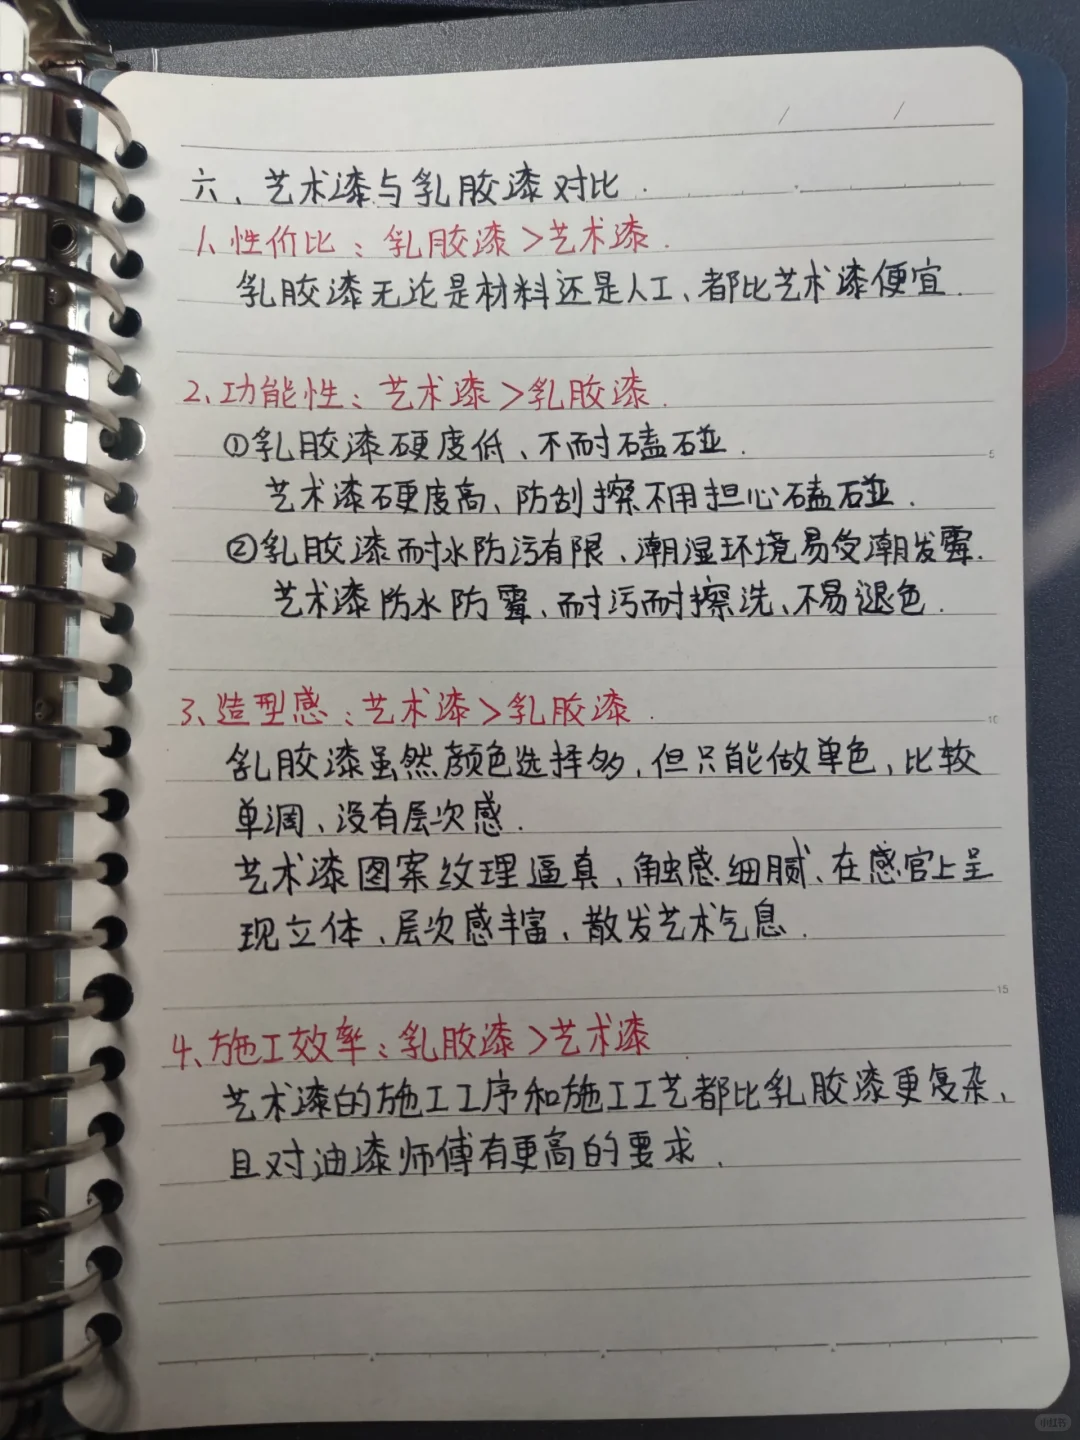 六、艺术漆与乳胶漆对比.
1、性价比：乳胶漆>艺术漆.
乳胶漆无论是材料还是人工、都比艺术漆便宜.
2、功能性：艺术漆>乳胶漆.
①乳胶漆硬度低、不耐磕碰.
艺术漆硬度高、防刮擦不用担心磕碰.
②乳胶漆耐水防污有限、潮湿环境易受潮发霉.
艺术漆防水防霉、耐污耐擦洗、不易退色.
3、造型感：艺术漆>乳胶漆.
乳胶漆虽然颜色选择多,但只能做单色,比较
单调、没有层次感.
艺术漆图案纹理逼真、触感细腻、在感官上呈
现立体、层次感丰富、散发艺术气息.
4、施工效率：乳胶漆>艺术漆
艺术漆的施工工序和施工工艺都比乳胶漆更复杂、
且对油漆师傅有更高的要求.
5
10
15
小红书